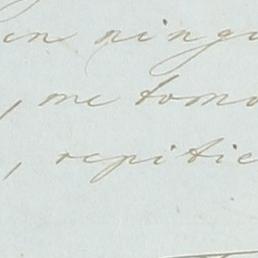 en ningu
, me tomo
, repitie